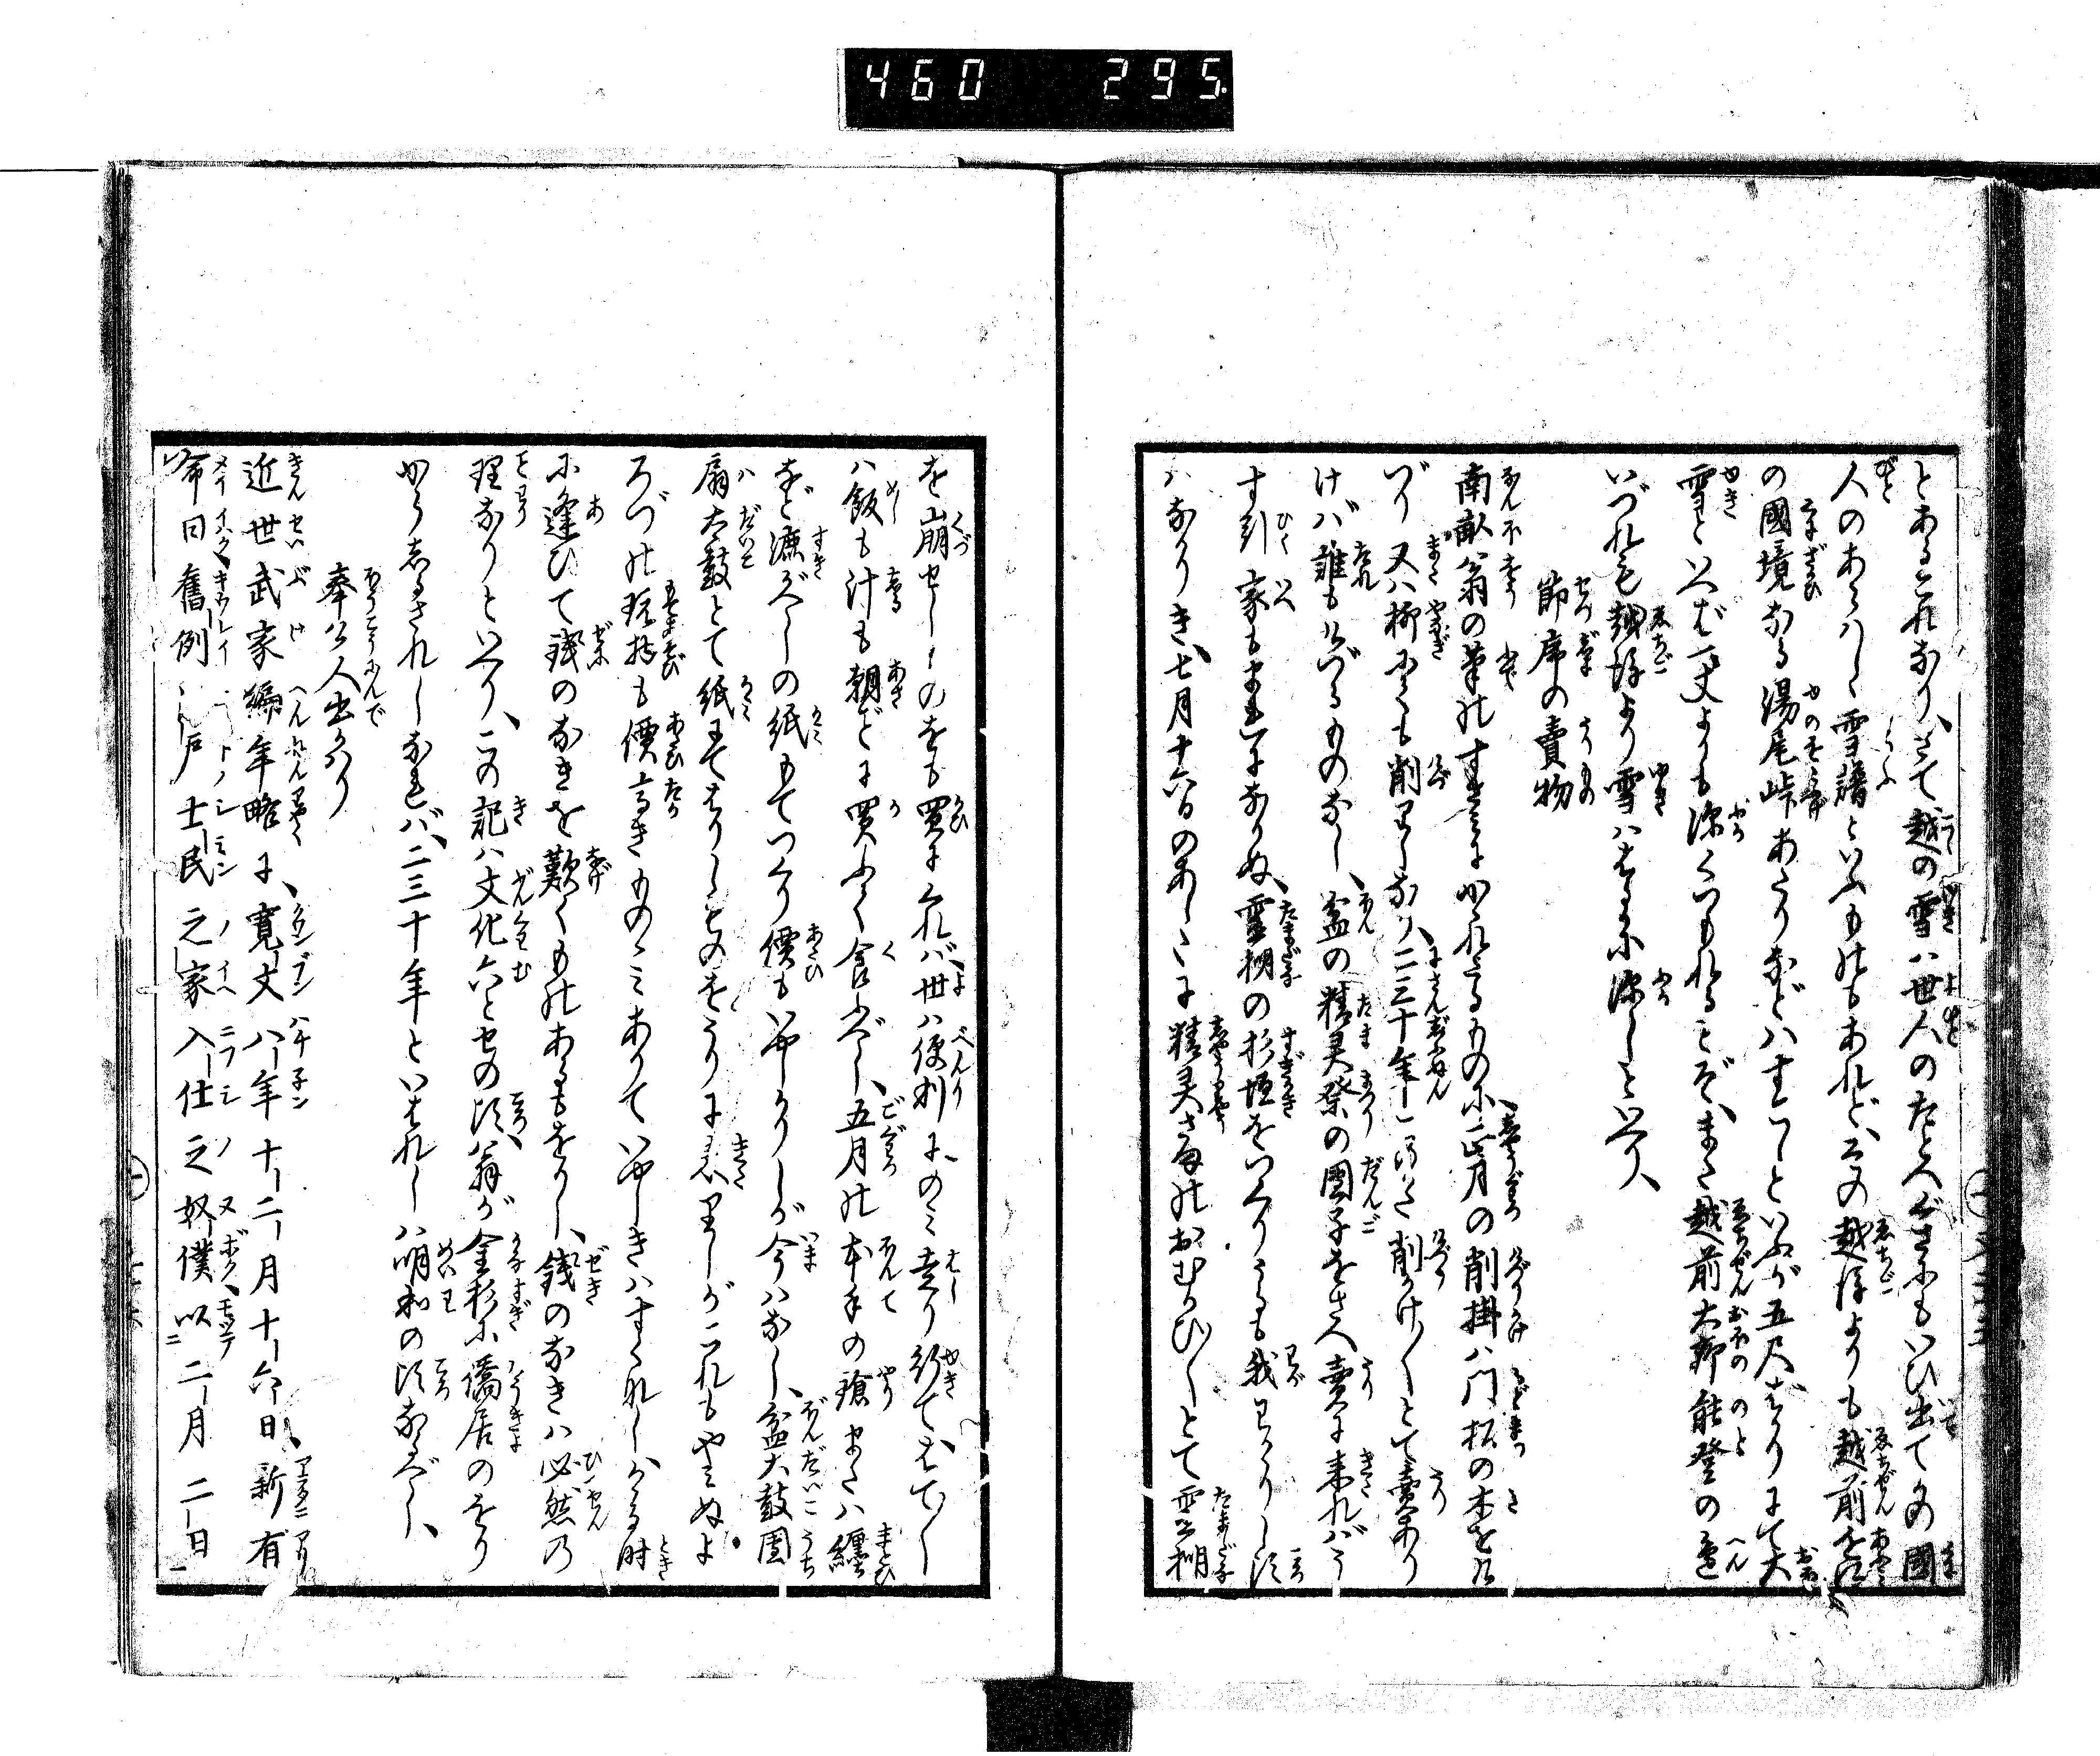 460 295.
とあるこれなり、さて越の雪ハ世人のたとへぐさにもいひ出てその國
人のあらハしゝ雪譜といふものもあれど、その越後よりも越前と江
の國境なる湯尾峠あたりなどハすくなしといふが五尺ばかりにて大
雪といへば一丈よりも深くつもれるとぞ、また越前大野能登の邊
いづれも越後より雪ハはるかに深しといへり、
節席の賣物
南畝翁の筆のすさみにかれたるものに、正月の削掛ハ門松の木をけ
づり又ハ柳にても削りしなり、二三十年このかた削かけ〳〵とて賣あり
けバ誰もけづるものなし、盆の精灵祭の團子をさへ賣に来れバう
す引家もまれになりぬ、霊棚の杉垣をつくりしも我わかゝりし頃
ハなかりき、七月十六日のあしたに精灵さまのおむかひ〳〵とて霊棚
を崩せしものをも買にくれバ、世ハ便利にのミ走り行てはて〳〵
ハ飯も汁も朝ごとに買ふて食ふべし、五月の本手の鎗または纏
など漉がへしの紙もてつくり價もいやしかりしが今ハなし、盆大鼓團
扇太鼓とて紙にてはりしものをうりに来りしが、これもやミぬ、よ
ろづの玩物も價高きものゝミありていやしきハすくなし、かゝる時
に逢ひて錢のなきを歎くものあるもをかし、錢のなきハ必然の
理なりといへり、この記ハ文化六とせの頃、翁が金杉に僑居のをり
かうしるされしなれバ、二三十年といはれしハ明和の頃なるべし、
奉公人出代り
近世武家編年略に、寛文八年十二月十六日、新有
命曰舊例江戸士民之家入仕之奴僕以二月二日